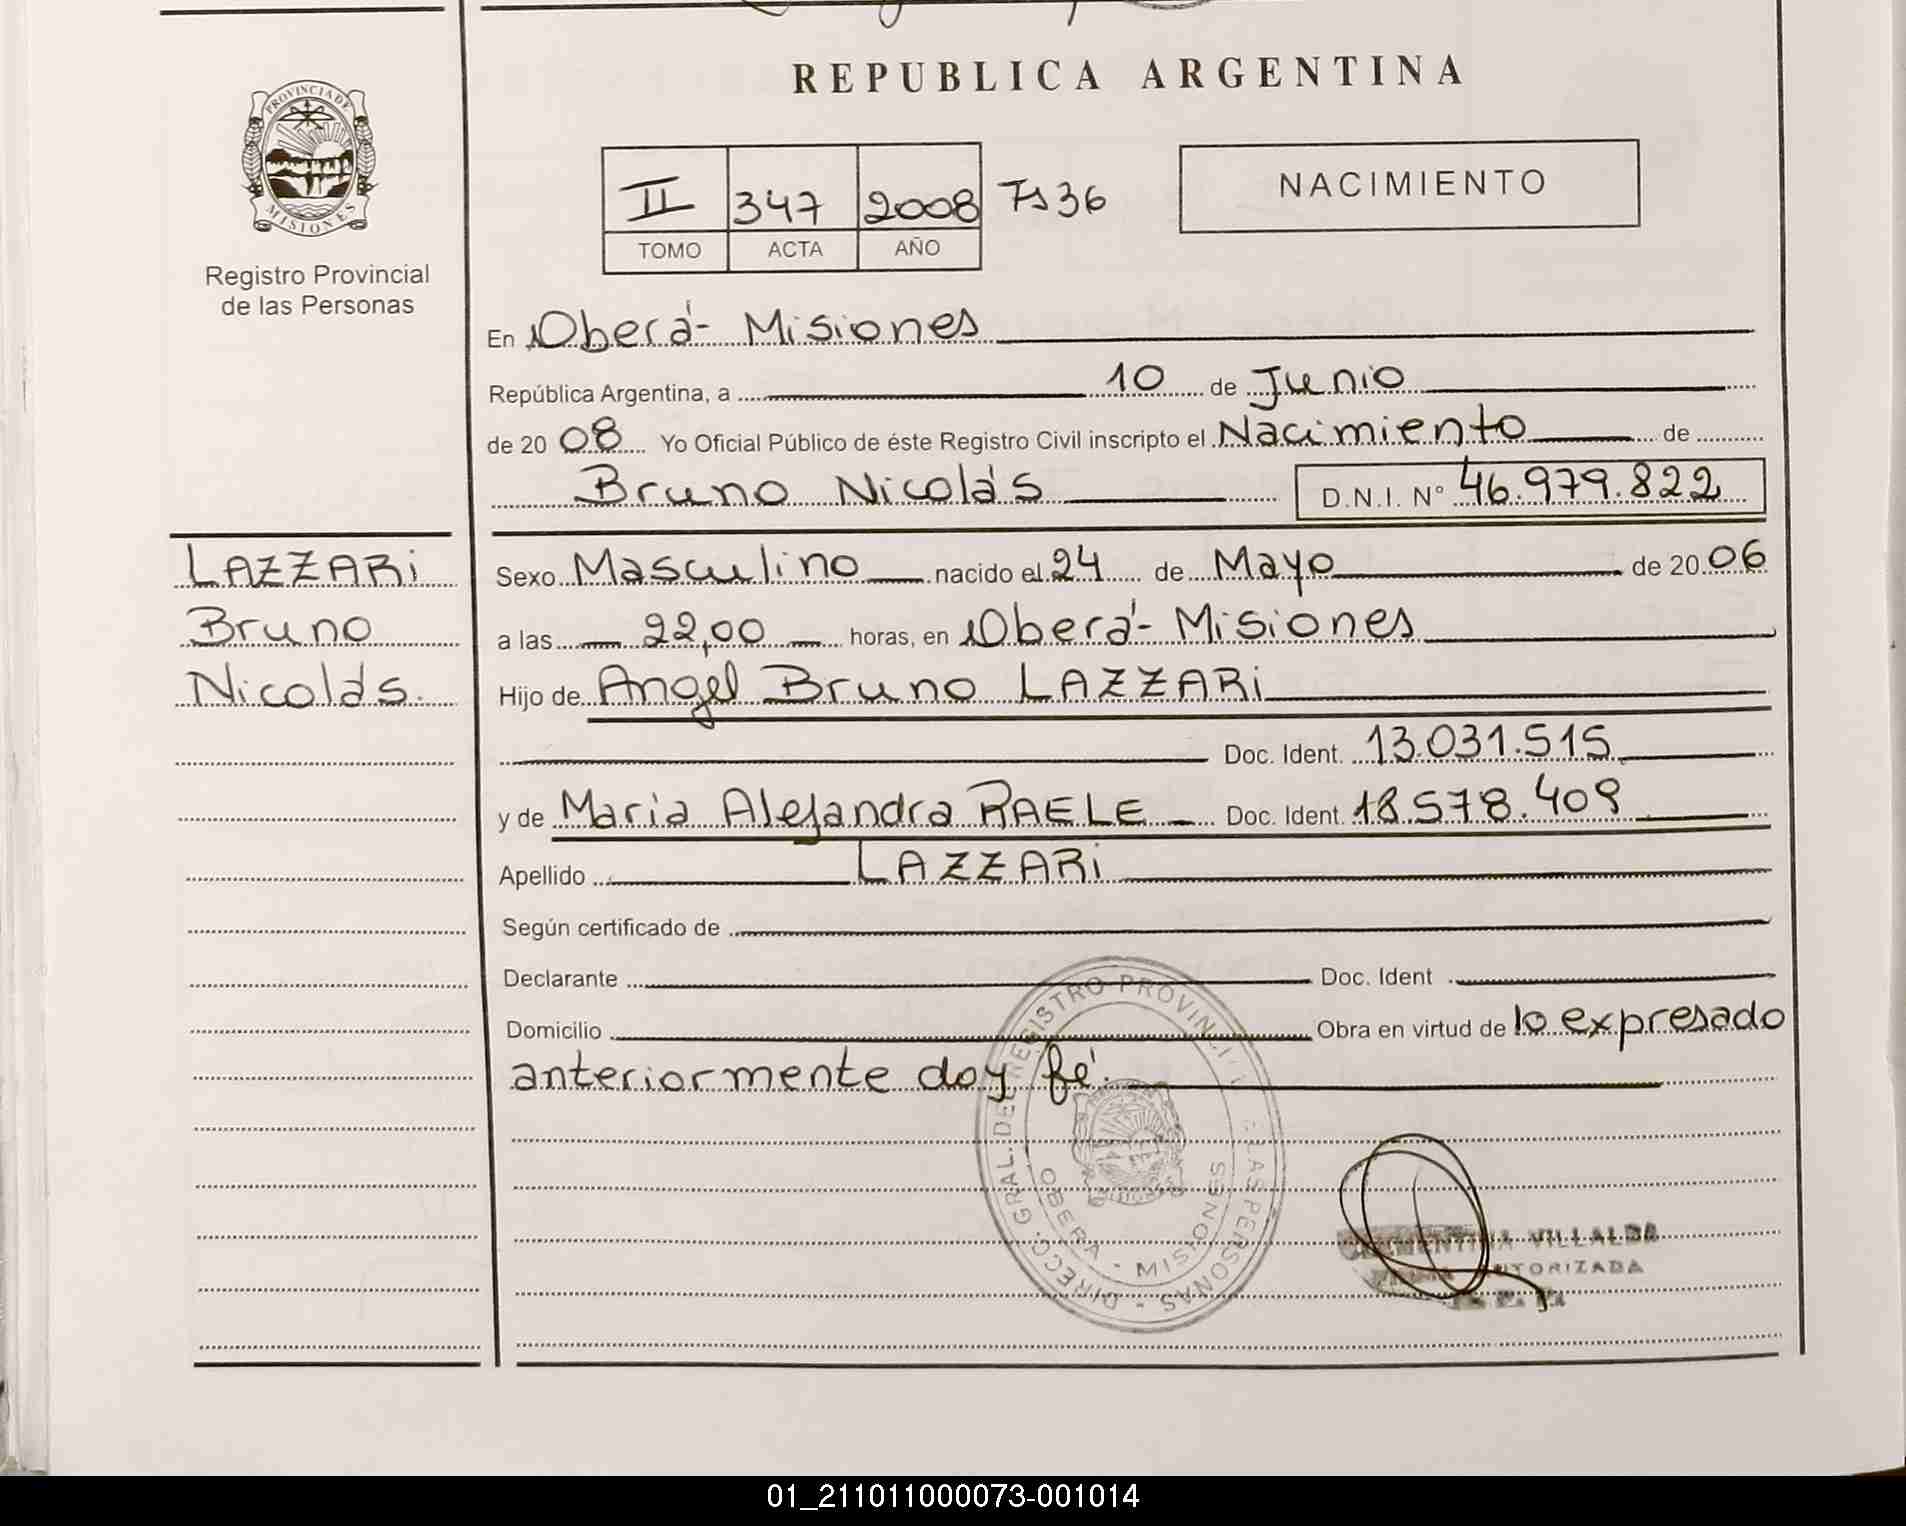 REPUBLICA ARGENTINA
PROVINCIA DE MISIONES
Registro Provincial
de las Personas
II 347 2008 Fs 36
TOMO ACTA AÑO
NACIMIENTO
En Oberá - Misiones
República Argentina, a 10 de Junio
de 2008 Yo Oficial Público de éste Registro Civil inscripto el Nacimiento de
Bruno Nicolás D.N.I. Nº 46.979.822
LAZZARi
Bruno
Nicolás.
Sexo Masculino nacido el 24 de Mayo de 2006
a las 22,00 horas, en Oberá - Misiones
Hijo de Angel Bruno LAZZARi
Doc. Ident. 13.031.515
y de Maria Alejandra RAELE Doc. Ident. 18.578.409
Apellido LAZZARi
Según certificado de
Declarante Doc. Ident
Domicilio Obra en virtud de lo expresado
anteriormente doy fé.
DIRECC. GRAL. DEL REGISTRO PROVINCIAL DE LAS PERSONAS
OBERA - MISIONES
VILLALBA
AUTORIZADA
01_211011000073-001014